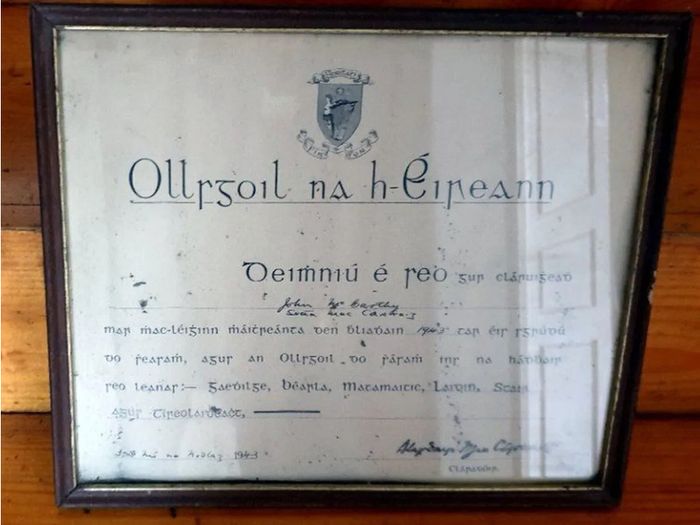 Ollsgoil na h-Éireann
Deiṁniú é seo gur cláruiġeaḋ
John McCarthy
Seán Mac Cárthaig
mar ṁac-léiġinn máitreánta den ḃliaḋain 1943 tar éis sgrúdú
do ṡeasaṁ, agus an Ollsgoil do ṡásaṁ ins na háḋḃair
seo leanas:— Gaeḋilge, Béarla, Matamaitic, Laidin, Stair
agus Tíreolaiḋeaċt,
na Nodlag 1943
Cláraḋóir